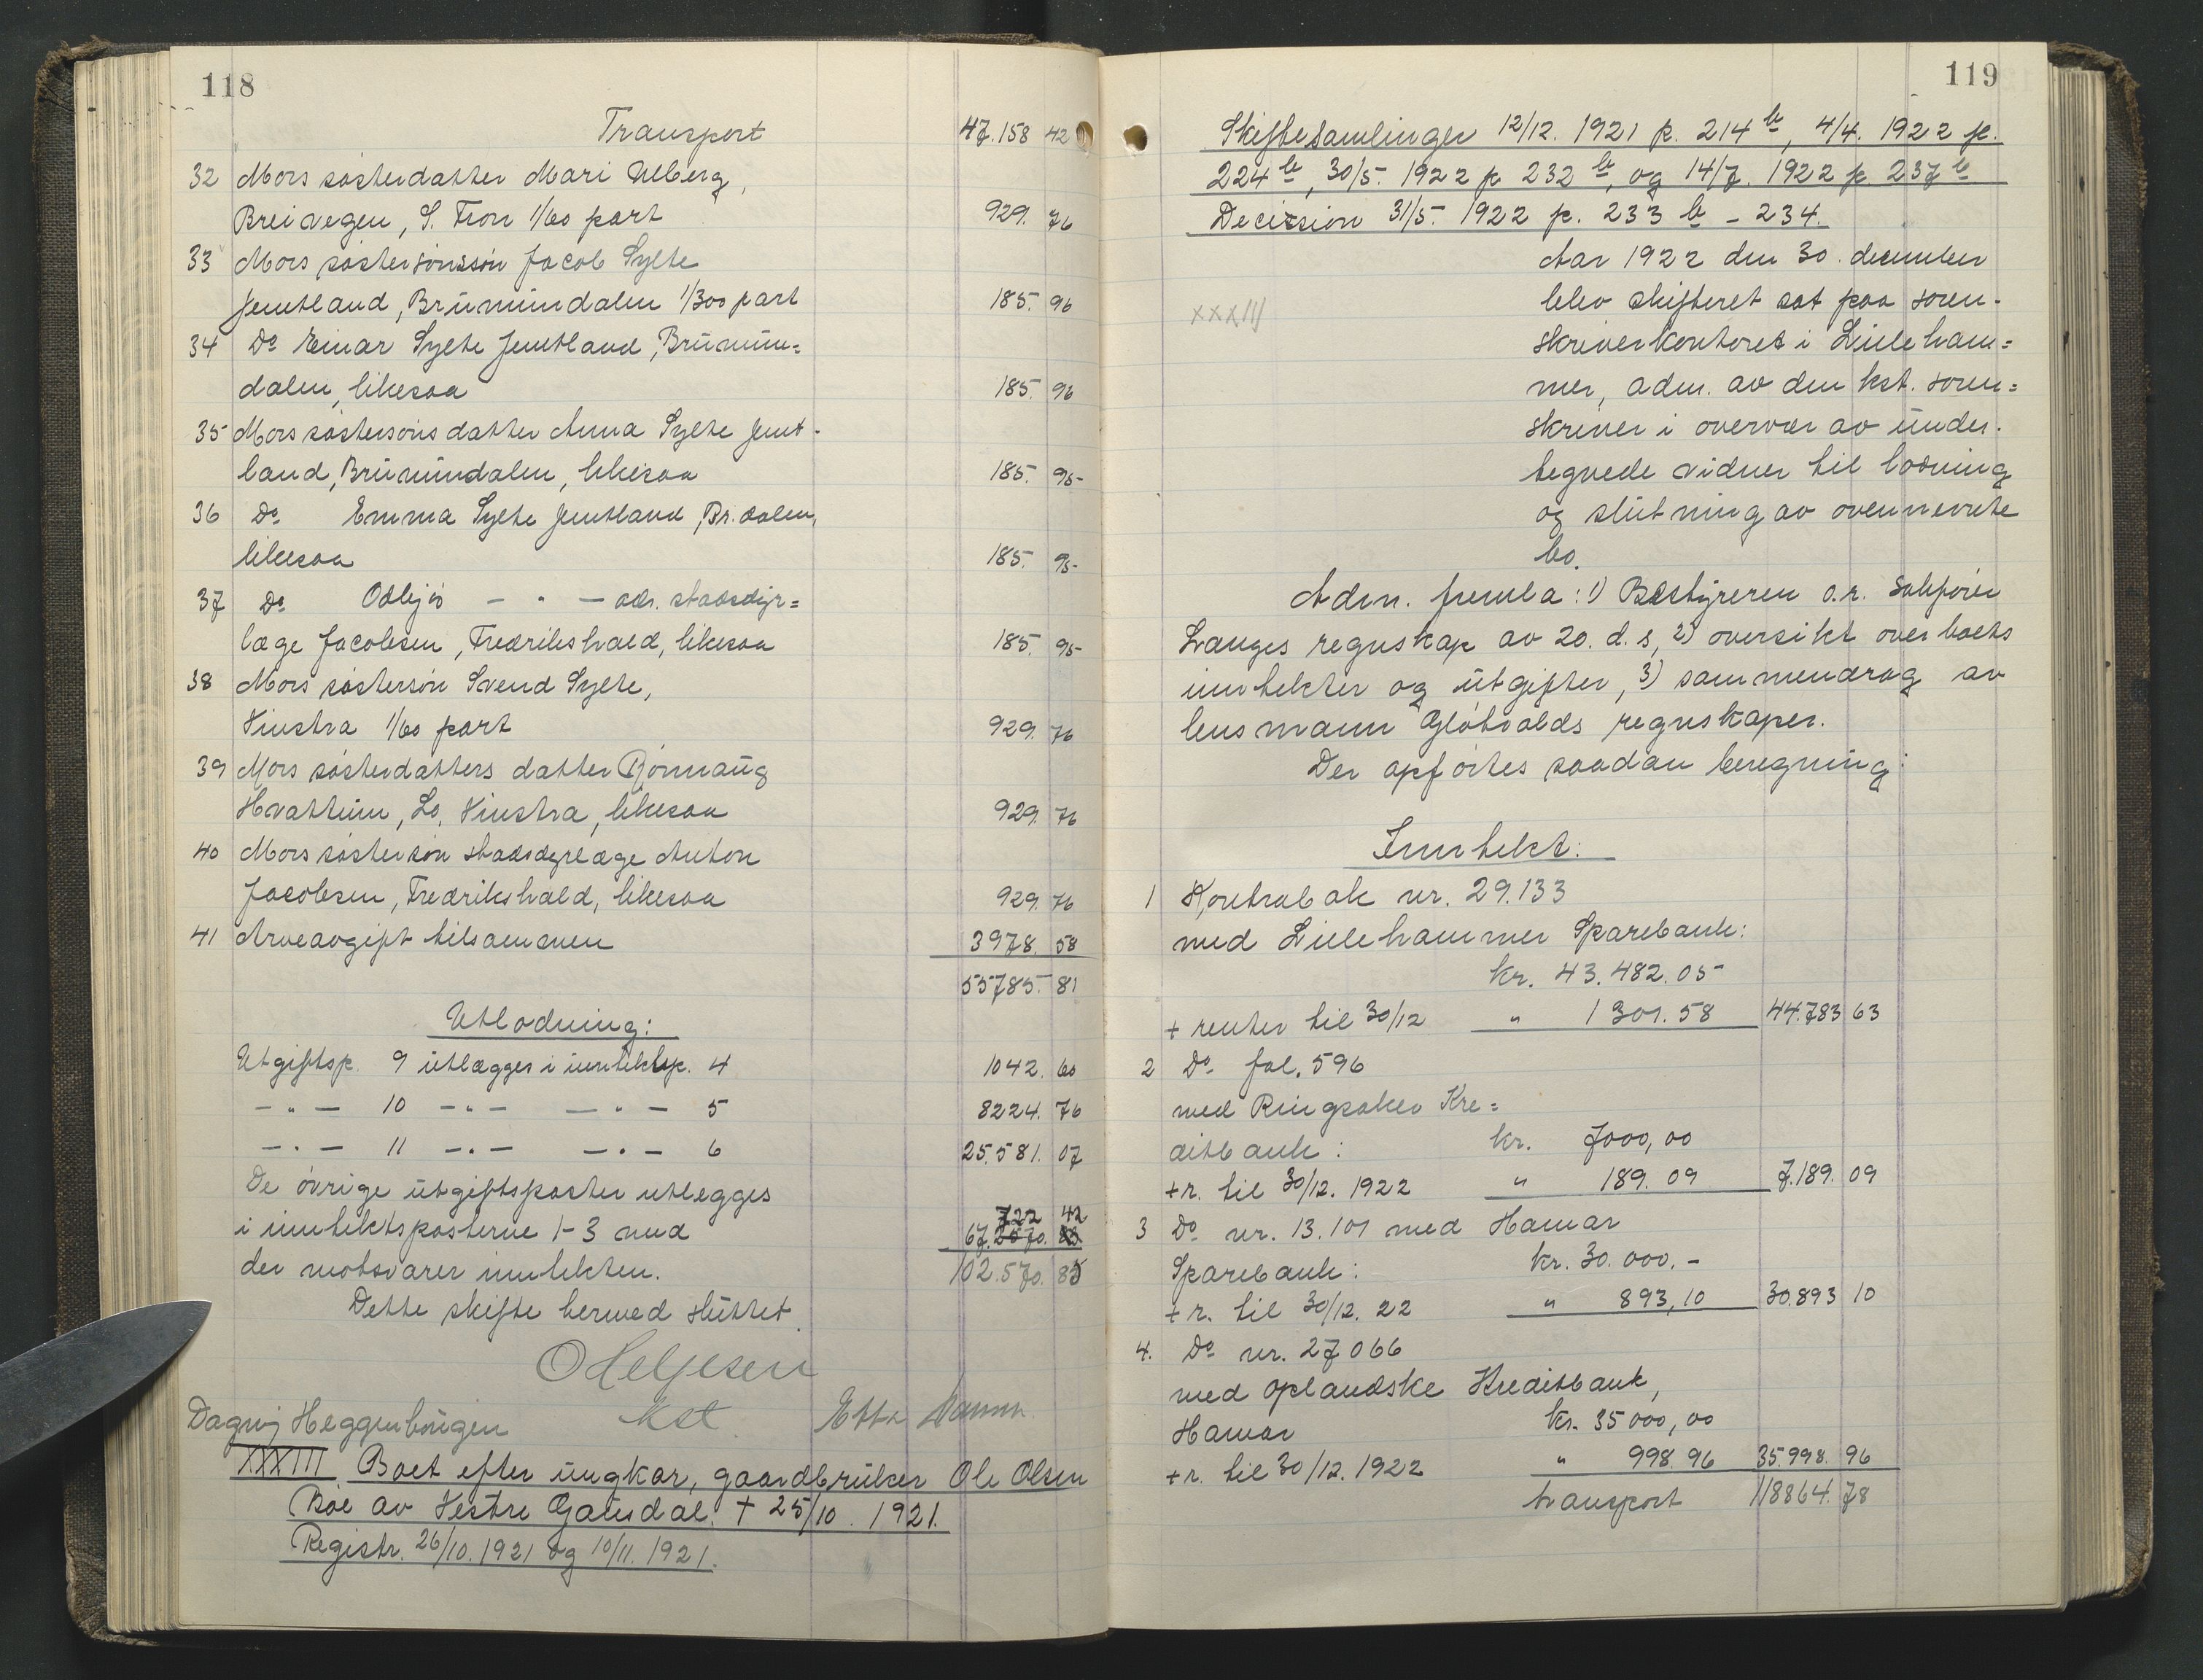 118
Transport 47.158 42
32 Mors søsterdatter Mari Ulberg,
Breivegen, S. Fron 1/60 part 929. 76
33 Mors søstersønssøn Jacob Sylte
Jemtland, Brumunddalen 1/300 part 185. 96
34 Do Einar Sylte Jemtland, Brumun=
dalen, likesaa 185. 96
35 Mors søstersøns datter Anna Sylte Jemt-
land, Brumunddalen, likesaa 185. 95
36 Do Emma Sylte Jemtland, Br.dalen,
likesaa 185. 95
37 Do Oddlijo — " — adr. stadsdyr=
læge Jacobsen, Fredrikshald, likesaa 185. 95
38 Mors søstersøn Svend Sylte,
Vinstra 1/60 part 929. 76
39 Mors søsterdatters datter Rønnaug
Hvattum, Lo, Vinstra, likesaa 929. 76
40 Mors søstersøn stadsdyrlæge Anton
Jacobsen, Fredrikshald, likesaa 929. 76
41 Arveavgift tilsammen 3978. 58
55785. 81
Utlodning:
Utgiftsp. 9 utlægges i inntektsp. 4 1042. 60
— " — 10 — " — — " — 5 8224. 76
— " — 11 — " — — " — 6 25.581. 07
De øvrige utgiftsposter utlægges
722 42
i inntektsposterne 1-3 med 67.
der motsvarer inntekten. 102.570. 85
Dette skifte hermed sluttet.
O Heljesen
Dagny Heggenhougen kst. Etta Damm
XXXIII Boet efter ungkar, gaardbruker Ole Olsen
Bøe av Vestre Gausdal. † 25/10. 1921.
Registr. 26/10. 1921 og 10/11. 1921.
119
Skiftesamlinger 12/12. 1921 p. 214 b, 4/4. 1922 p.
224 b, 30/5. 1922 p 232 b, og 14/7. 1922 p 237 b
Decission 31/5. 1922 p. 233 b - 234.
Aar 1922 den 30. december
XXXIII blev skifteret sat paa soren-
skriverkontoret i Lilleham=
mer, adm. av den kst. soren=
skriver i overvær av under-
tegnede vidner til lodning
og slutning av ovennevnte
bo.
Adm. freml a: 1) Bestyreren o.r. sakfører
Langes regnskap av 20. d. s, 2) oversikt over boets
inntekter og utgifter, 3) sammendrag av
lensmann Gløtvolds regnskaper.
Der opførtes saadan beregning:
Inntekt:
1 Kontrabok nr. 29.133
med Lillehammer Sparebank:
kr. 43.482.05
+ renter til 30/12 " 1301.58 44.783 63
2 Do fol. 596
med Ringsaker Kre=
ditbank: kr. 7000,00
+ r. til 30/12. 1922 " 189.09 7.189. 09
3 Do nr. 13.101 med Hamar
Sparebank: kr. 30.000.-
+ r. til 30/12. 22 " 893,10 30.893 10
4. Do nr. 27066
med Oplandske Kreditbank,
Hamar kr. 35000,00
+ r. til 30/12. 1922 " 998.96 35.998. 96
transport 118864. 78